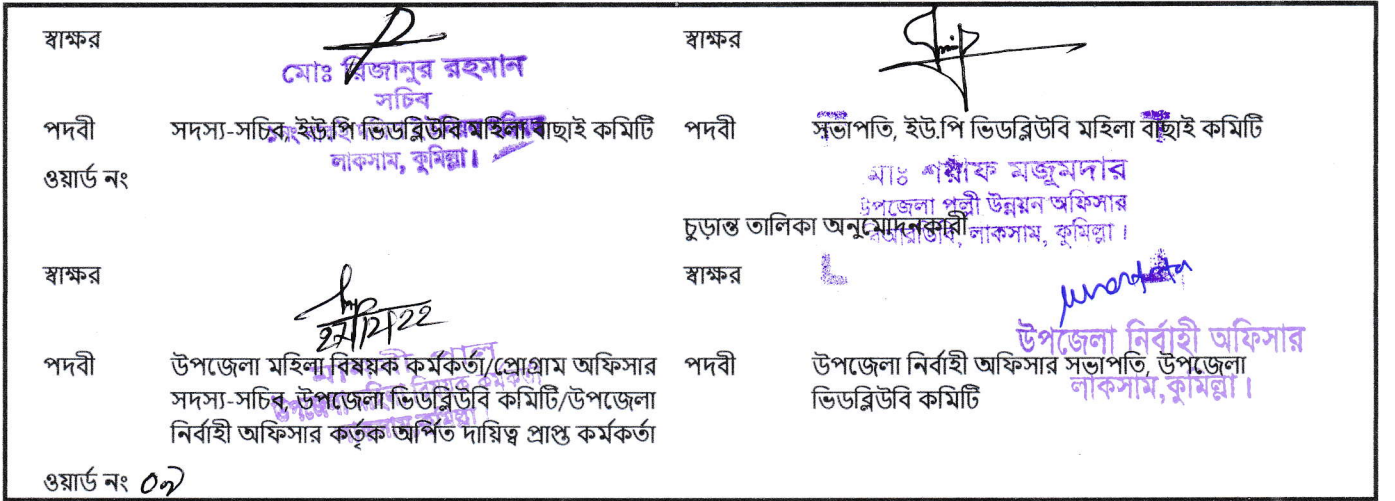 স্বাক্ষর
মোঃ মিজানুর রহমান
সচিব
পদবী সদস্য-সচিব, ইউ.পি ভিডব্লিউবি মহিলা বাছাই কমিটি
লাকসাম, কুমিল্লা।
ওয়ার্ড নং
স্বাক্ষর
পদবী সভাপতি, ইউ.পি ভিডব্লিউবি মহিলা বাছাই কমিটি
মজুমদার
উপজেলা পল্লী উন্নয়ন অফিসার
লাকসাম, কুমিল্লা।
চুড়ান্ত তালিকা অনুমোদনকারী
স্বাক্ষর
27/12/22
পদবী উপজেলা মহিলা বিষয়ক কর্মকর্তা/প্রোগ্রাম অফিসার
সদস্য-সচিব, উপজেলা ভিডব্লিউবি কমিটি/উপজেলা
নির্বাহী অফিসার কর্তৃক অর্পিত দায়িত্ব প্রাপ্ত কর্মকর্তা
স্বাক্ষর
উপজেলা নির্বাহী অফিসার
লাকসাম,কুমিল্লা।
পদবী উপজেলা নির্বাহী অফিসার সভাপতি, উপজেলা
ভিডব্লিউবি কমিটি
ওয়ার্ড নং ০৯